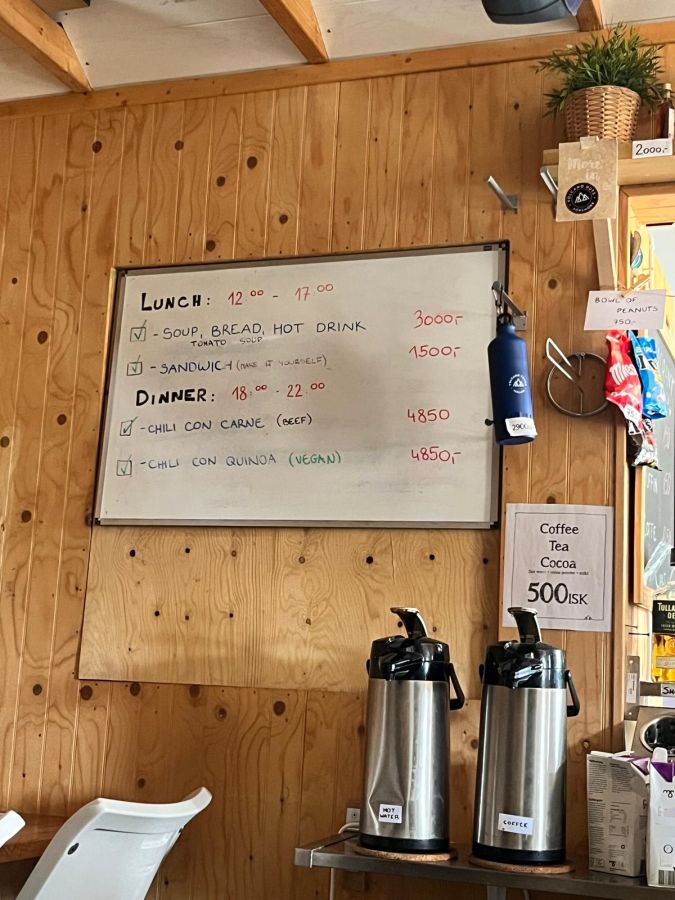 LUNCH: 12.00 - 17.00
- SOUP, BREAD, HOT DRINK 3000,-
TOMATO SOUP
- SANDWICH (MAKE IT YOURSELF) 1500,-
DINNER: 18.00 - 22.00
- CHILI CON CARNE (BEEF) 4850
- CHILI CON QUINOA (VEGAN) 4850,-
2000,-
More
in
BOWL OF
PEANUTS
750,-
2900
Coffee
Tea
Cocoa
500ISK
TULLA
DE
HOT
WATER
COFFEE